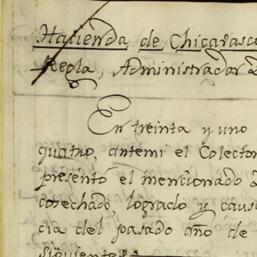 Hazienda de Chicavasco
Regla, Administrador
En treinta y uno
quatro, antemi el Colector
presentó el mencionado
cosechado, logrado y caus
cia del pasado año de
siguientes